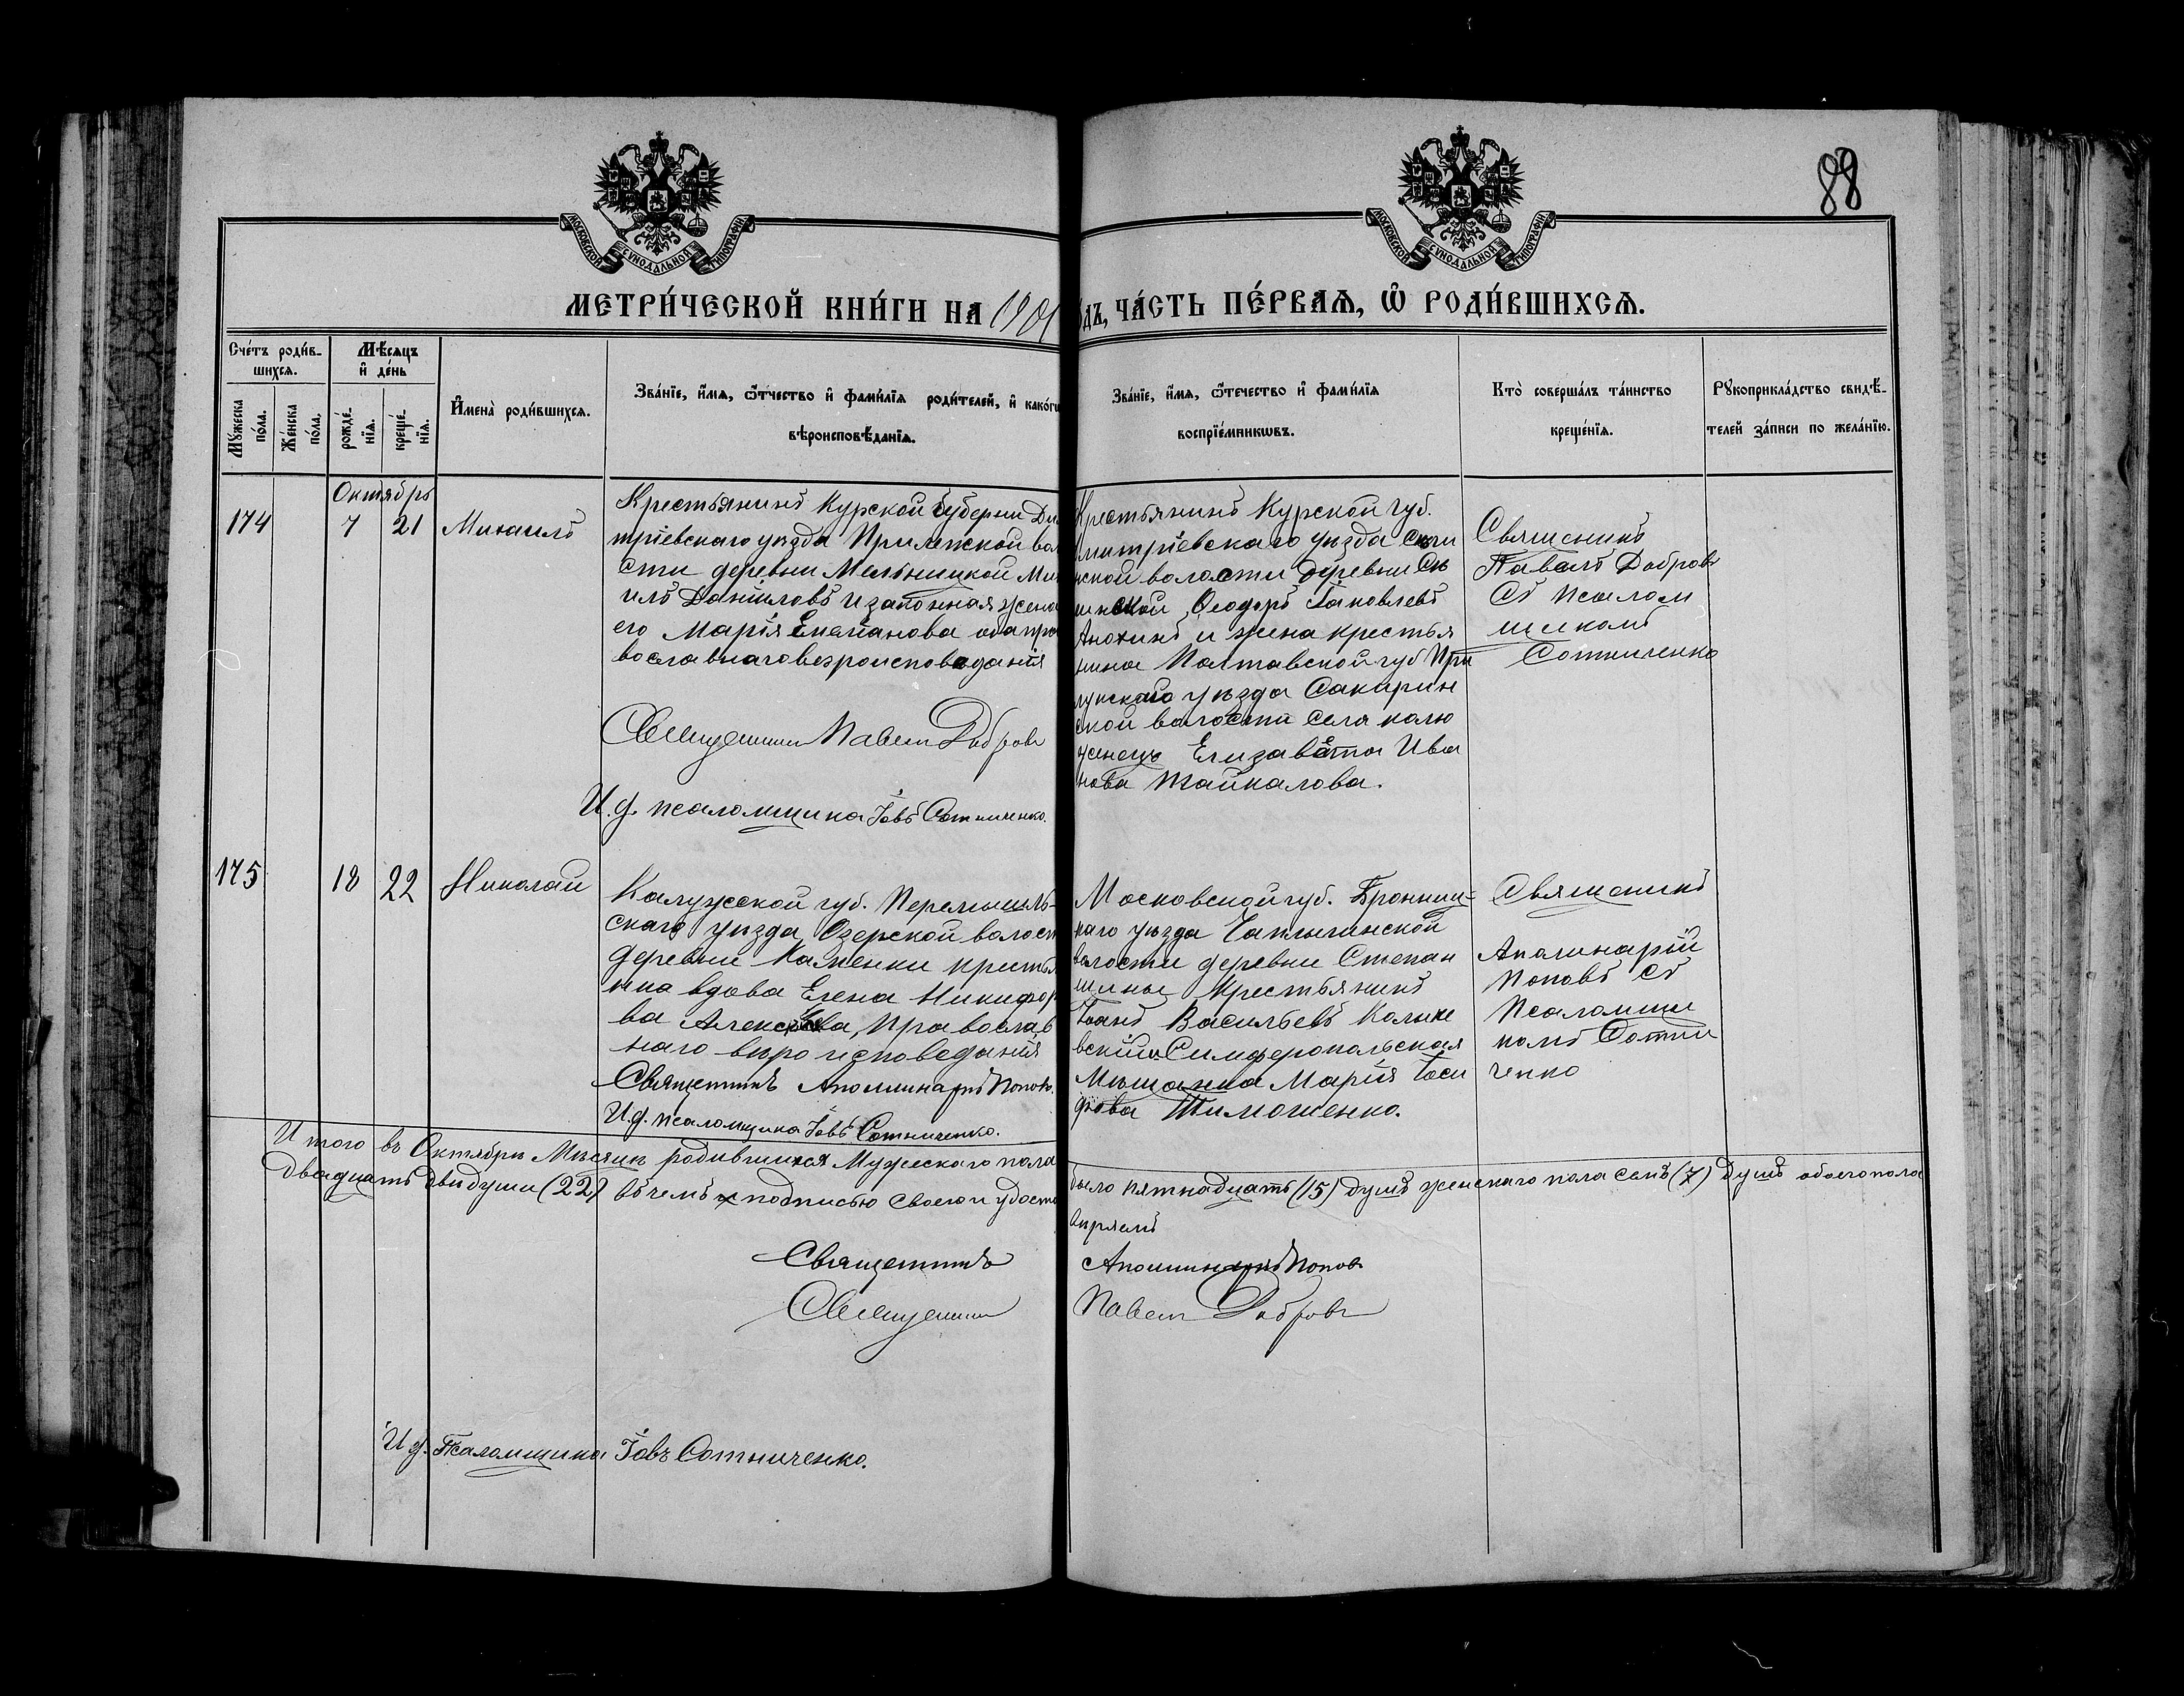 88
МОСКОВСКОЙ СУНОДАЛЬНОЙ ТИПОГРАФІИ
МОСКОВСКОЙ СУНОДАЛЬНОЙ ТИПОГРАФІИ
МЕТРИ́ЧЕСКОЙ КНИ́ГИ НА 1901
ДЪ, ЧА́СТЬ ПЕ́РВАѦ, Ѡ РОДИ́ВШИХСѦ.
Сче́тъ роди́в-
шихсѧ.
Мꙋжеска по́ла.
Же́нска по́ла.
Мѣ́сяцъ
и҆ де́нь
рожде́-
нїѧ.
креще́-
нїѧ.
И҆мена̀ роди́вшихсѧ.
Зва́нїе, и҆́мѧ, ѻ҆́тчество и҆ фами́лїѧ роди́телей, и҆ како́гѡ
вѣроисповѣ́данїѧ.
Зва́нїе, и҆́мѧ, ѻ҆́течество и҆ фами́лїѧ
воспрїе́мникѡвъ.
Кто̀ соверша́лъ та́инство
креще́нїѧ.
Рꙋкоприкла́дство свидѣ́-
телей за́писи по жела́нїю.
Октябрь
174
7 21
Михаилъ
Крестьянинъ Курской Губерни Ди
трiевскаго уѣзда Прилепской вол
сти деревни Мельницкой Ми
илъ Данiиловъ и законная жена
его Марiя Степанова оба пра
вославнаго вѣроисповеданiя
Священникъ Павелъ Добровъ
И. д. псаломщика Iовъ Сотниченко.
Крестьянинъ Курской губ.
митрiевскаго уѣзда
ской волости деревни
Ѳеодоръ Iаковлевъ
Анохинъ и жена крестья
нина Полтавской губ При
лукскаго уѣзда
ской волости села Калю
женецъ Елизавета Ива
нова Шайкалова.
Священикъ
Павелъ Добровъ
Съ Псалом
щикомъ
Сотниченко
175
18 22
Николай
Калужской губ. Перемышль-
скаго уѣзда Озерской волост
деревни Каменки крестья
нка вдова Елена Никифор
ва Алексѣева, Православ
наго вѣроисповеданiя
Священникъ Аполлинарiй Поповъ.
И. д. псаломщика Iовъ Сотниченко.
Московской губ. Бронниц-
каго уѣзда Чаплыгинской
волости деревни Степан
щины Крестьянинъ
Iоанъ Васильевъ
и Симферопольская
Мѣщанка Марiя Iоси
фова Тимошенко.
Священикъ
Аполинарiй
Поповъ Съ
Псаломщи
комъ Сотни
ченко
Итого въ Октябрѣ Мѣсяцѣ родившихся Мужескаго пола
было пятнадцать (15) душъ женскаго пола семь (7) Душъ обоего пола
двадцать двѣ души (22) въ чемъ и подписью своею и удосто
вѣряемъ
Священникъ Аполлинарiй Поповъ
Священникъ Павелъ Добровъ
И. д. Псаломщика Iовъ Сотниченко.